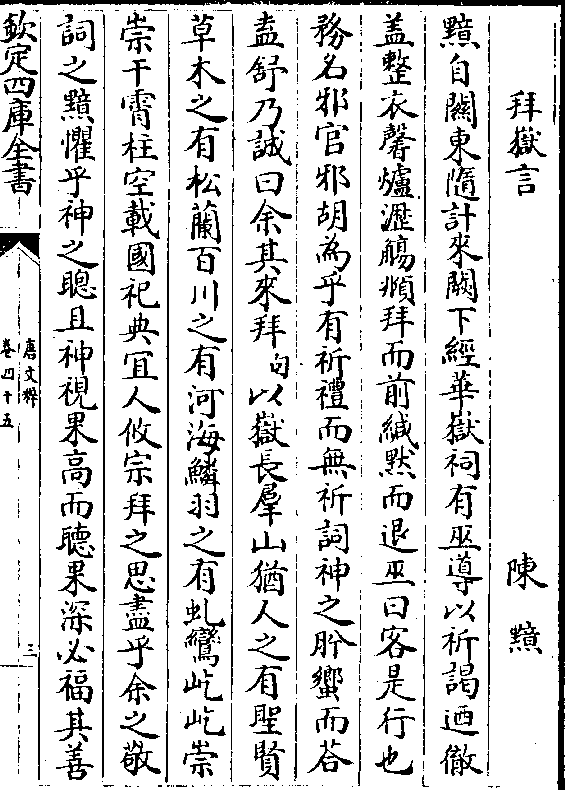 拜嶽言　陳黯
黯自關東隨計來闕下經華嶽祠有巫導以祈謁迺徹
盖整衣馨爐瀝觴頫拜而前緘黙而退巫曰客是行也
務名邪官邪胡為乎有祈禮而無祈詞神之肸蠁而荅
盍舒乃誠曰余其來拜句以嶽長羣山猶人之有聖賢
草木之有松蘭百川之有河海鱗羽之有虬鸞屹屹崇
崇干霄柱空載國祀典宜人攸宗拜之思盡乎余之敬
詞之黯懼乎神之聰且神視果高而聽果深必福其善
欽定四庫全書
唐文粹
卷四十五
三